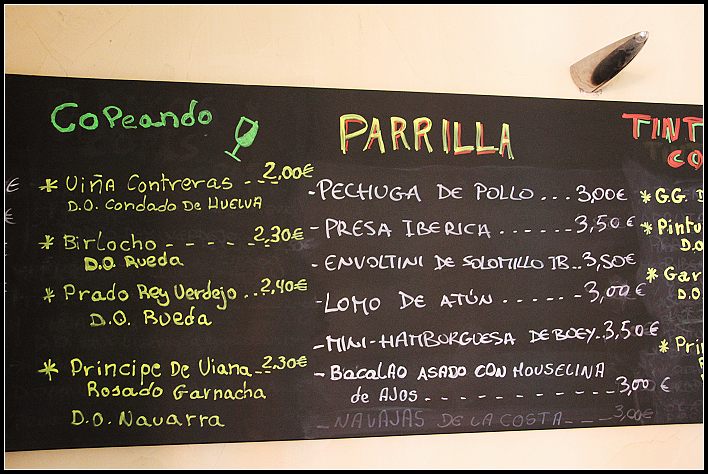 Copeando
* Viña Contreras --- 2,00€
D.O. Condado De HUELVA
* Birlocho - - - - - - 2,30€
D.O. Rueda
* Prado Rey Verdejo .. 2,40€
D.O. Rueda
* Principe De Viana -- 2,30€
Rosado Garnacha
D.O. Navarra
PARRILLA
- PECHUGA DE POLLO ... 3,00€
- PRESA IBERICA ...... 3,50€
- ENVOLTINI DE SOLOMILLO IB.. 3,50€
- LOMO DE ATÚN ....... 3,00€
- MINI-HAMBORGUESA DE BOEY.. 3,50€
- BACALAO ASADO CON MOUSELINA
de AJOS. - - - - - - - - - - - 3,00€
- NAVAJAS DE LA COSTA - - - 3,00€
TINT
CO
* G.G. D
* Pintu
D.O
* Gar
D.O
* Pri
€
€